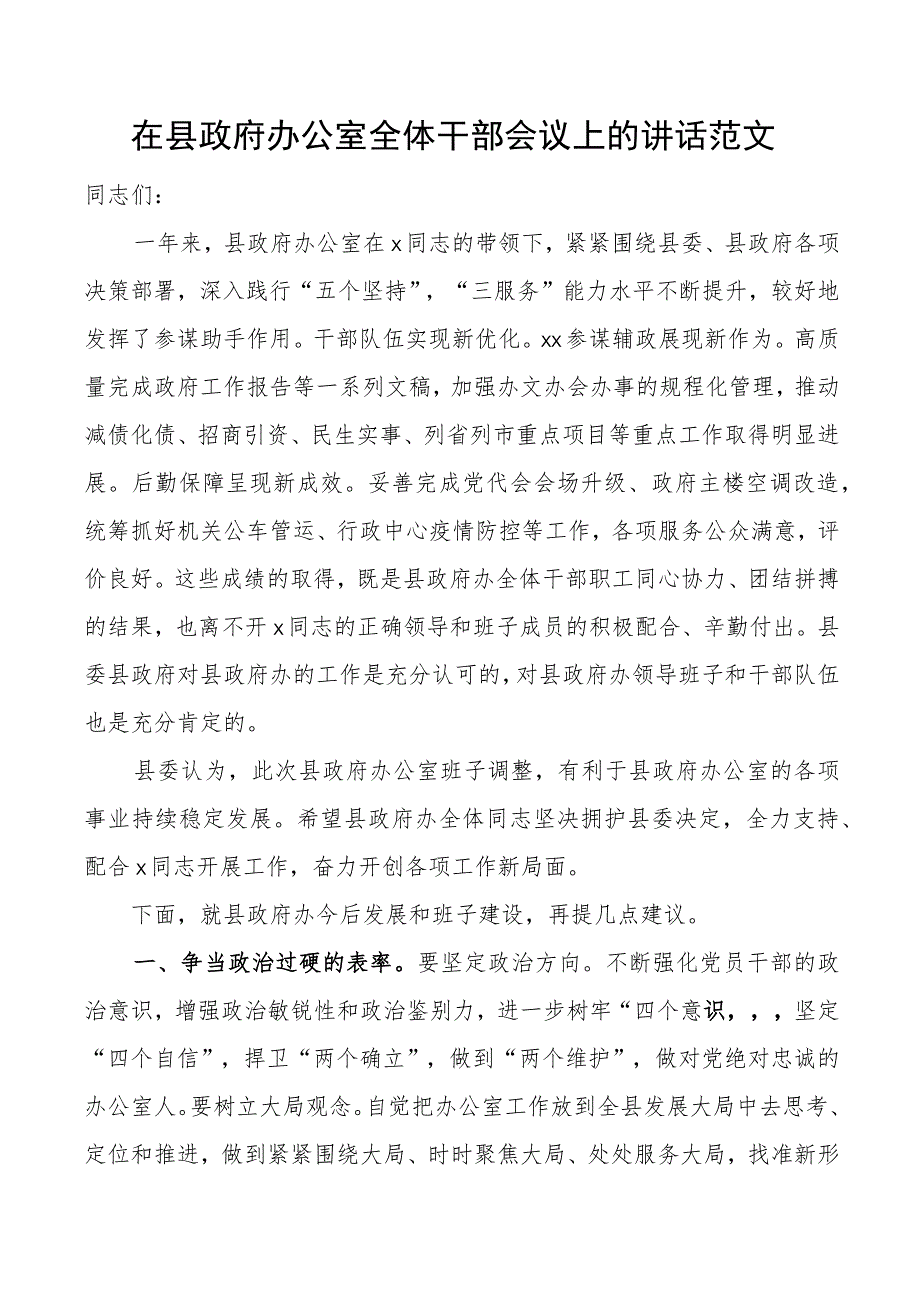 在县政府办公室全体干部会议上的讲话范文
同志们：
一年来，县政府办公室在x同志的带领下，紧紧围绕县委、县政府各项
决策部署，深入践行“五个坚持”，“三服务”能力水平不断提升，较好地
发挥了参谋助手作用。干部队伍实现新优化。xx参谋辅政展现新作为。高质
量完成政府工作报告等一系列文稿，加强办文办会办事的规程化管理，推动
减债化债、招商引资、民生实事、列省列市重点项目等重点工作取得明显进
展。后勤保障呈现新成效。妥善完成党代会会场升级、政府主楼空调改造，
统筹抓好机关公车管运、行政中心疫情防控等工作，各项服务公众满意，评
价良好。这些成绩的取得，既是县政府办全体干部职工同心协力、团结拼搏
的结果，也离不开x同志的正确领导和班子成员的积极配合、辛勤付出。县
委县政府对县政府办的工作是充分认可的，对县政府办领导班子和干部队伍
也是充分肯定的。
县委认为，此次县政府办公室班子调整，有利于县政府办公室的各项
事业持续稳定发展。希望县政府办全体同志坚决拥护县委决定，全力支持、
配合x同志开展工作，奋力开创各项工作新局面。
下面，就县政府办今后发展和班子建设，再提几点建议。
一、争当政治过硬的表率。要坚定政治方向。不断强化党员干部的政
治意识，增强政治敏锐性和政治鉴别力，进一步树牢“四个意识，，，坚定
“四个自信”，捍卫“两个确立”，做到“两个维护”，做对党绝对忠诚的
办公室人。要树立大局观念。自觉把办公室工作放到全县发展大局中去思考、
定位和推进，做到紧紧围绕大局、时时聚焦大局、处处服务大局，找准新形